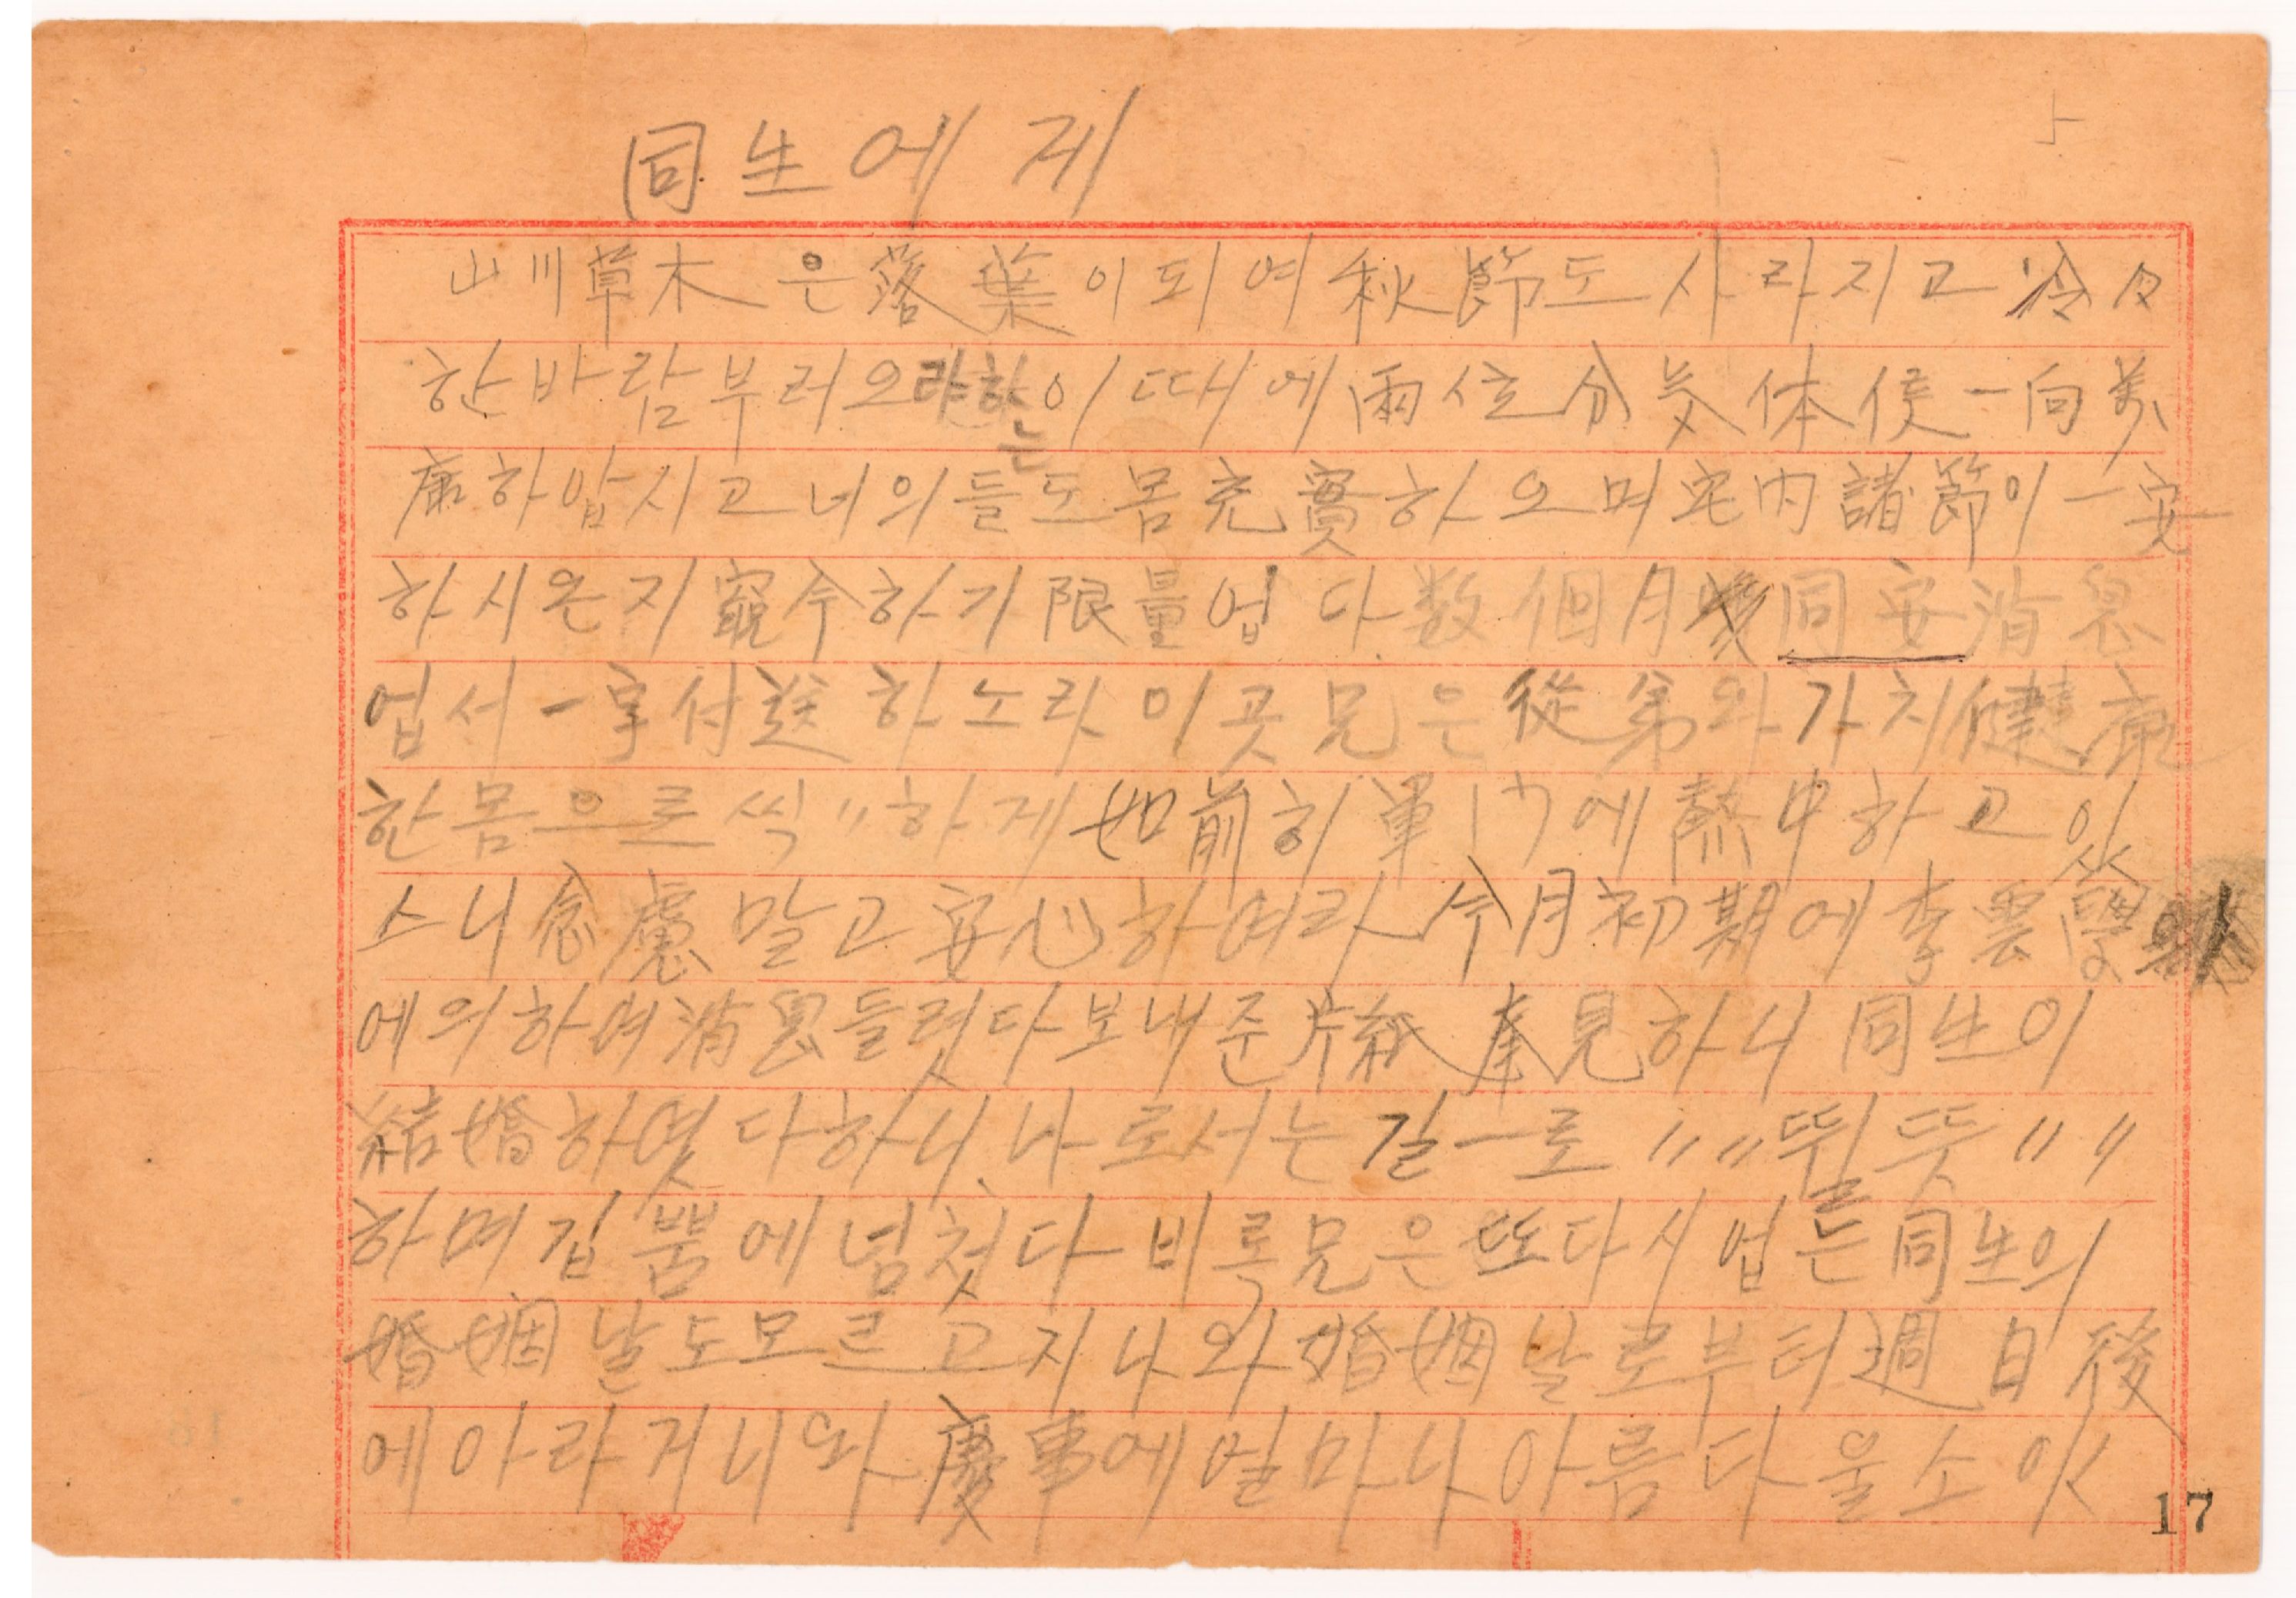 同生에게
山川草木은落葉이되여秋節도사라지고冷々
한바람부러오랴하는이때에兩位分 体候一向萬
康하압시고너의들도몸充實하으며宅內諸節이一安
하시온지 하기限量업다数個月 同安消息
업서一字付送하노라이곳兄은從弟와가치健康
한몸으로씩〃하게如前히軍门에熱中하고잇
스니念慮말고安心하여라今月初期에李雲學
에의하여消息들렷다보내준片紙奉見하니同生이
結婚하엿다하니나로서는길一로〃〃뛸뜻〃〃
하며깁뿜에넘첫다비록兄은또다시업는同生의
婚姻날도모르고지나와婚姻날로부터週日後
에아라거니와慶事에얼마나아름다울소잇
17